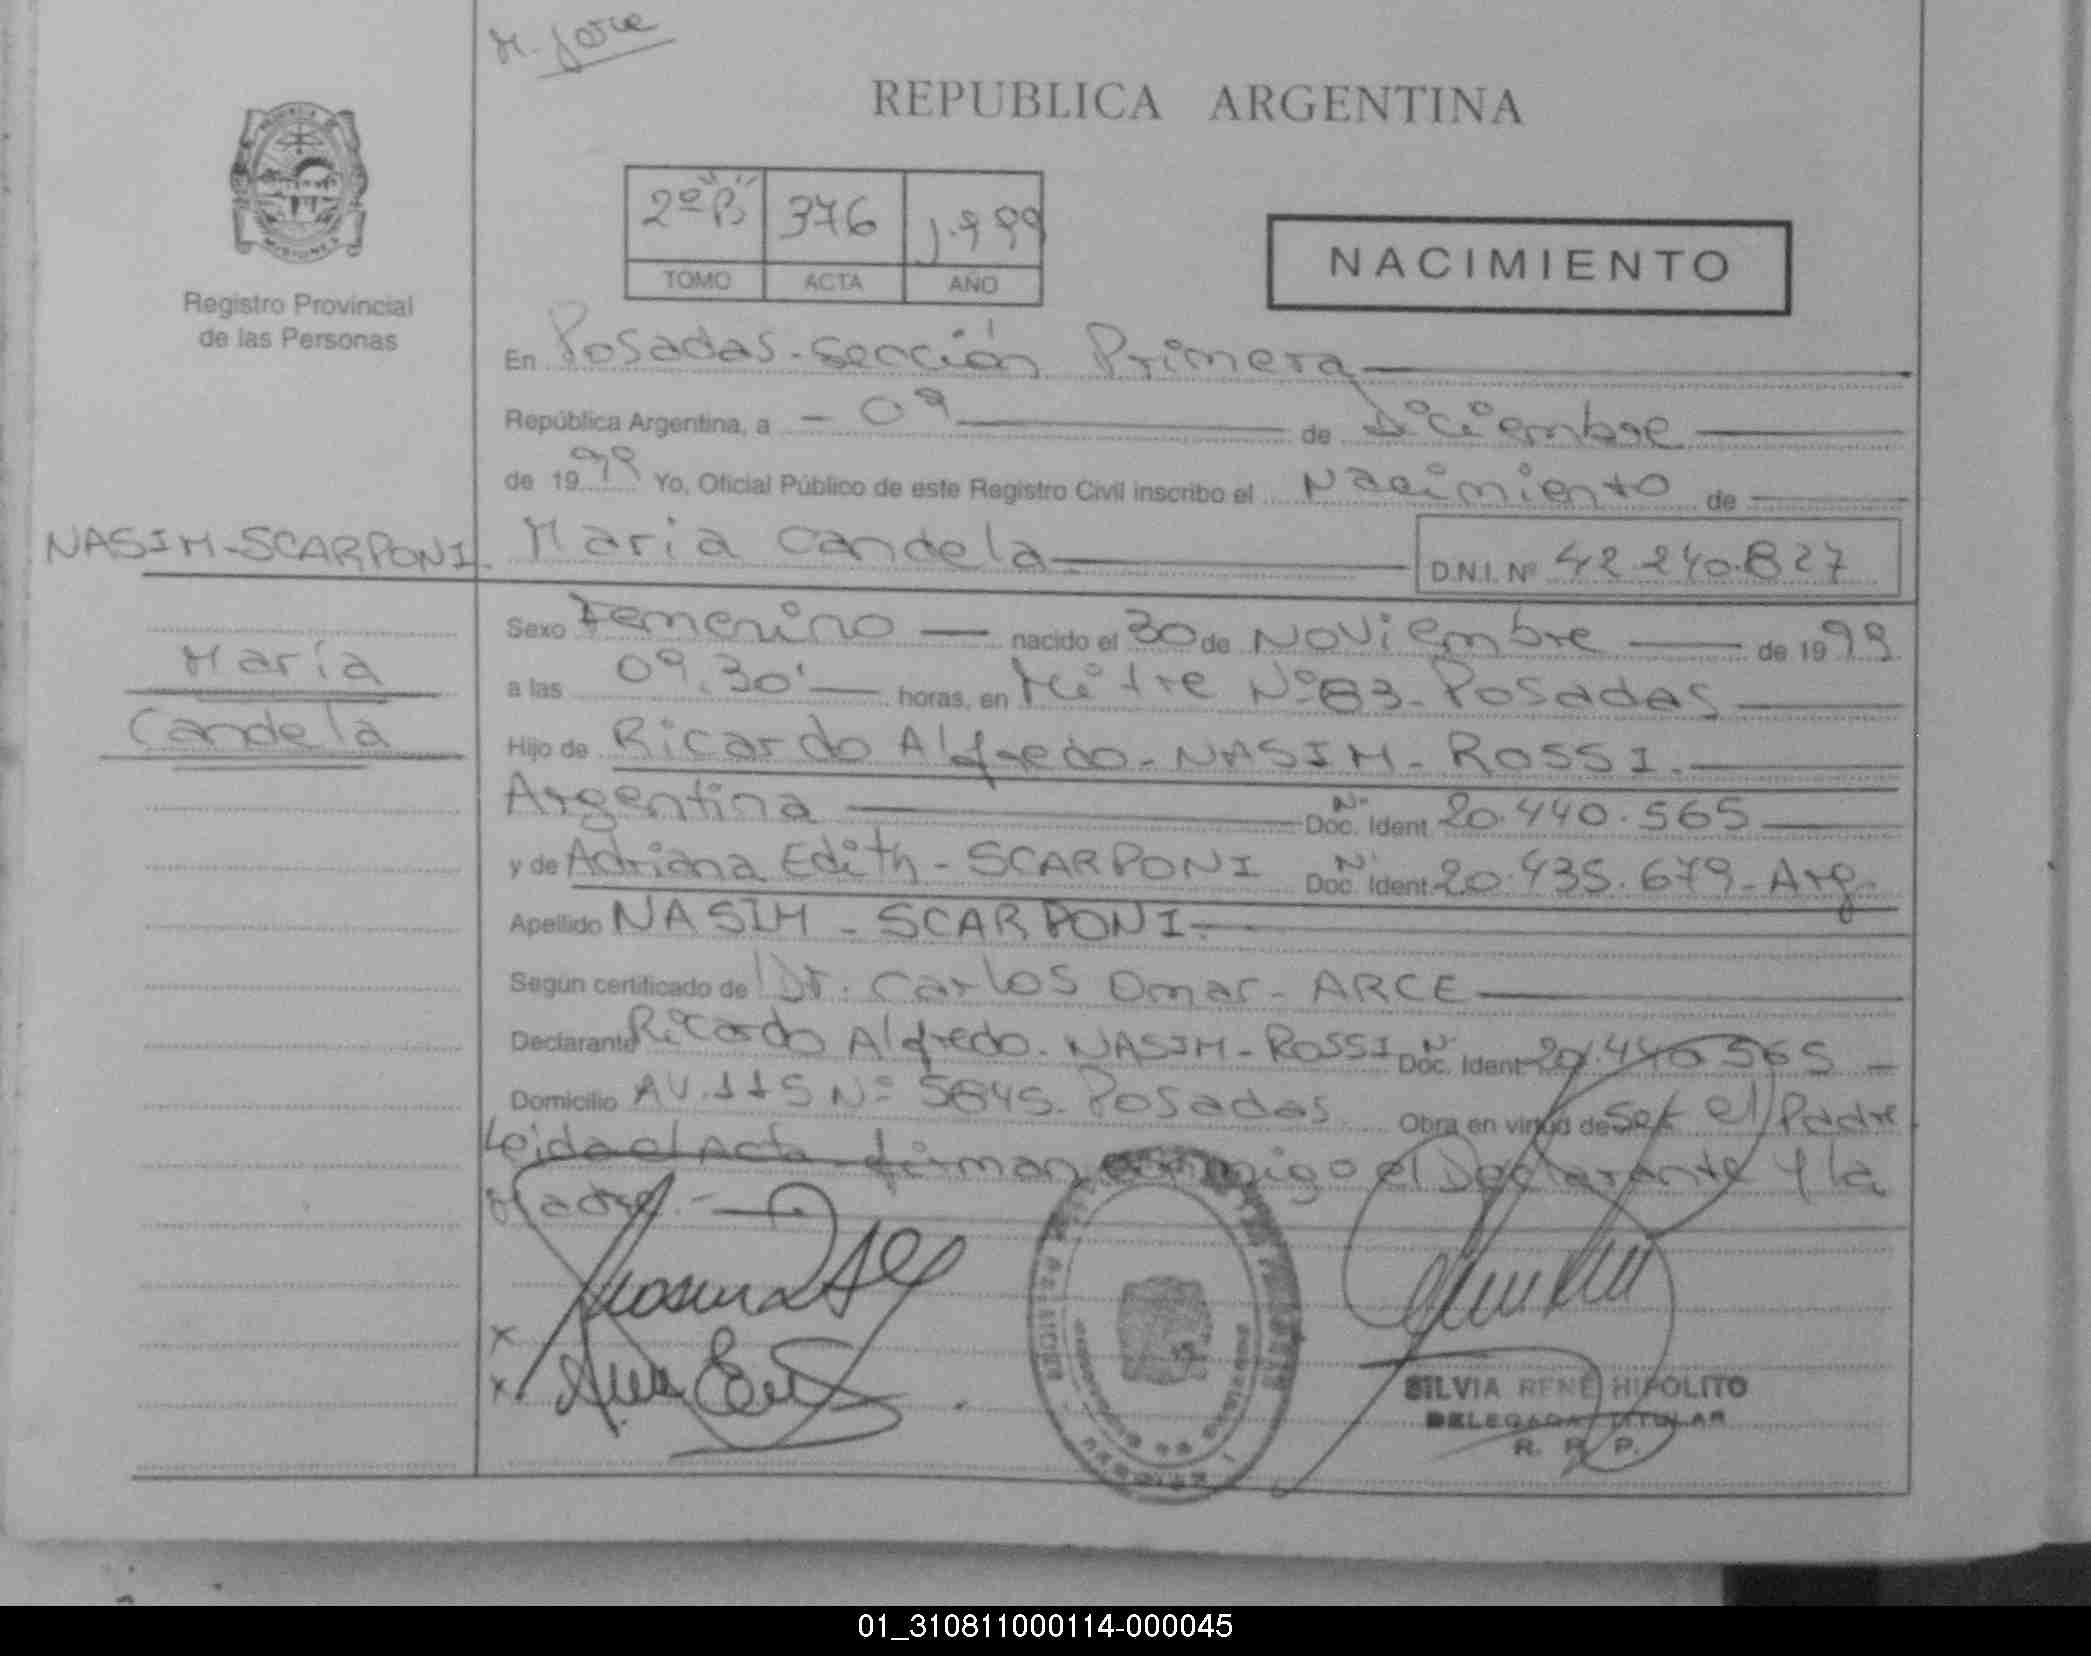 M. Jose
REPUBLICA ARGENTINA
2º "B" 376 1.999
TOMO ACTA AÑO
NACIMIENTO
Registro Provincial
de las Personas
En Posadas - Sección Primera
República Argentina, a - 09 de Diciembre
de 1999 Yo, Oficial Público de este Registro Civil inscribo el Nacimiento de
NASIM-SCARPONI. Maria Candela D.N.I. Nº 42.240.827
Sexo Femenino nacido el 30 de Noviembre de 1999
María
a las 09.30' horas, en Mitre Nº 83 - Posadas
Candela
Hijo de Ricardo Alfredo - NASIM - ROSSI.
Argentina Nº Doc. Ident. 20.440.565
y de Adriana Edith - SCARPONI Nº Doc. Ident. 20.435.679 - Arg.
Apellido NASIM - SCARPONI.
Según certificado de Dr. Carlos Omar - ARCE
Declarante Ricardo Alfredo - NASIM - ROSSI Nº Doc. Ident. 20.440.565
Domicilio AV. 115 Nº 5845. Posadas Obra en virtud de Ser el Padre
Leida el Acta firman conmigo el Declarante y la
Madre. -
x
x
SILVIA RENE HIPOLITO
DELEGADA TITULAR
R. R. P.
01_310811000114-000045